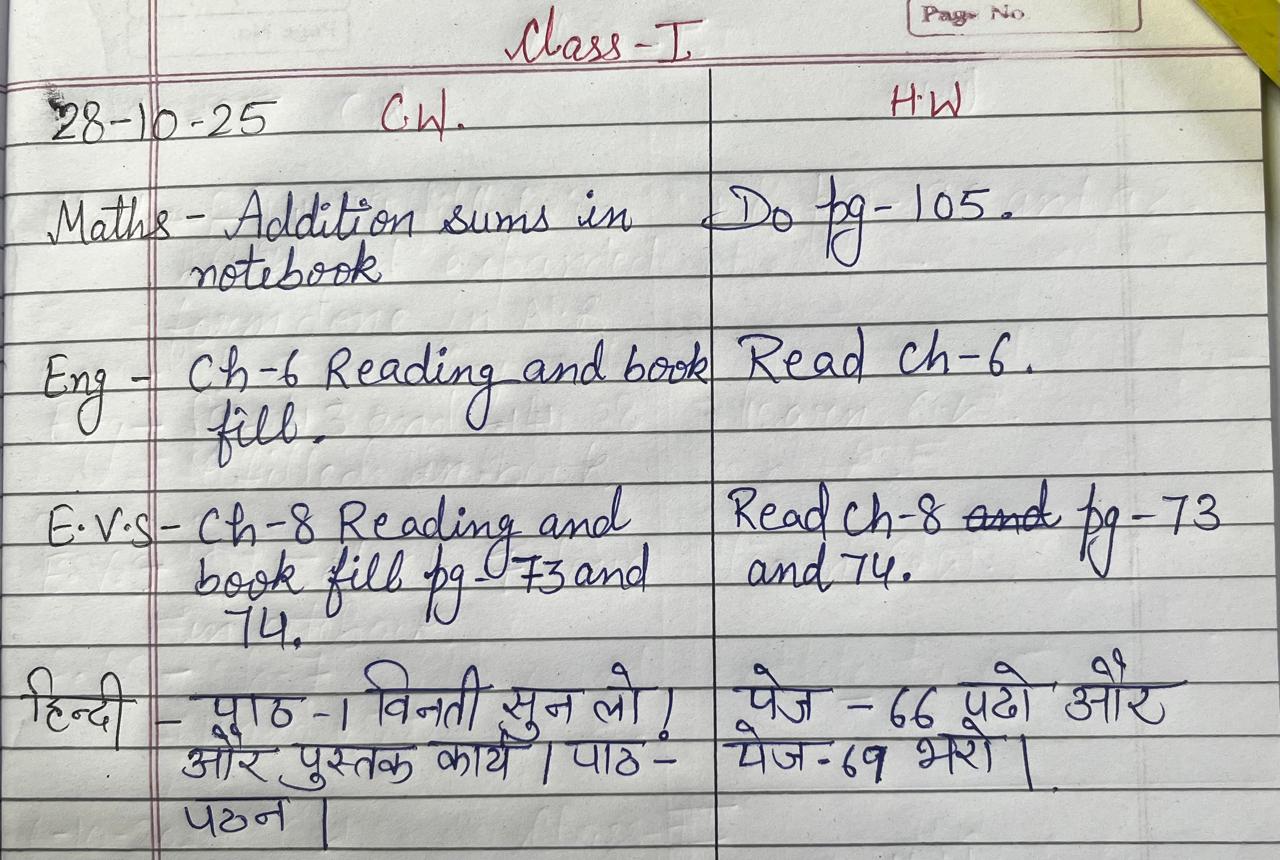 Page No
Class-I
28-10-25 C.W. H.W
Maths - Addition sums in Do pg-105.
notebook
Eng - Ch-6 Reading and book Read Ch-6.
fill.
E.V.S - Ch-8 Reading and Read Ch-8 and pg-73
book fill pg-73 and and 74.
74.
हिन्दी - पाठ -1 विनती सुन लो! पेज - 66 पढो और
और पुस्तक कार्य । पाठ - पेज-69 भरो ।
पठन ।